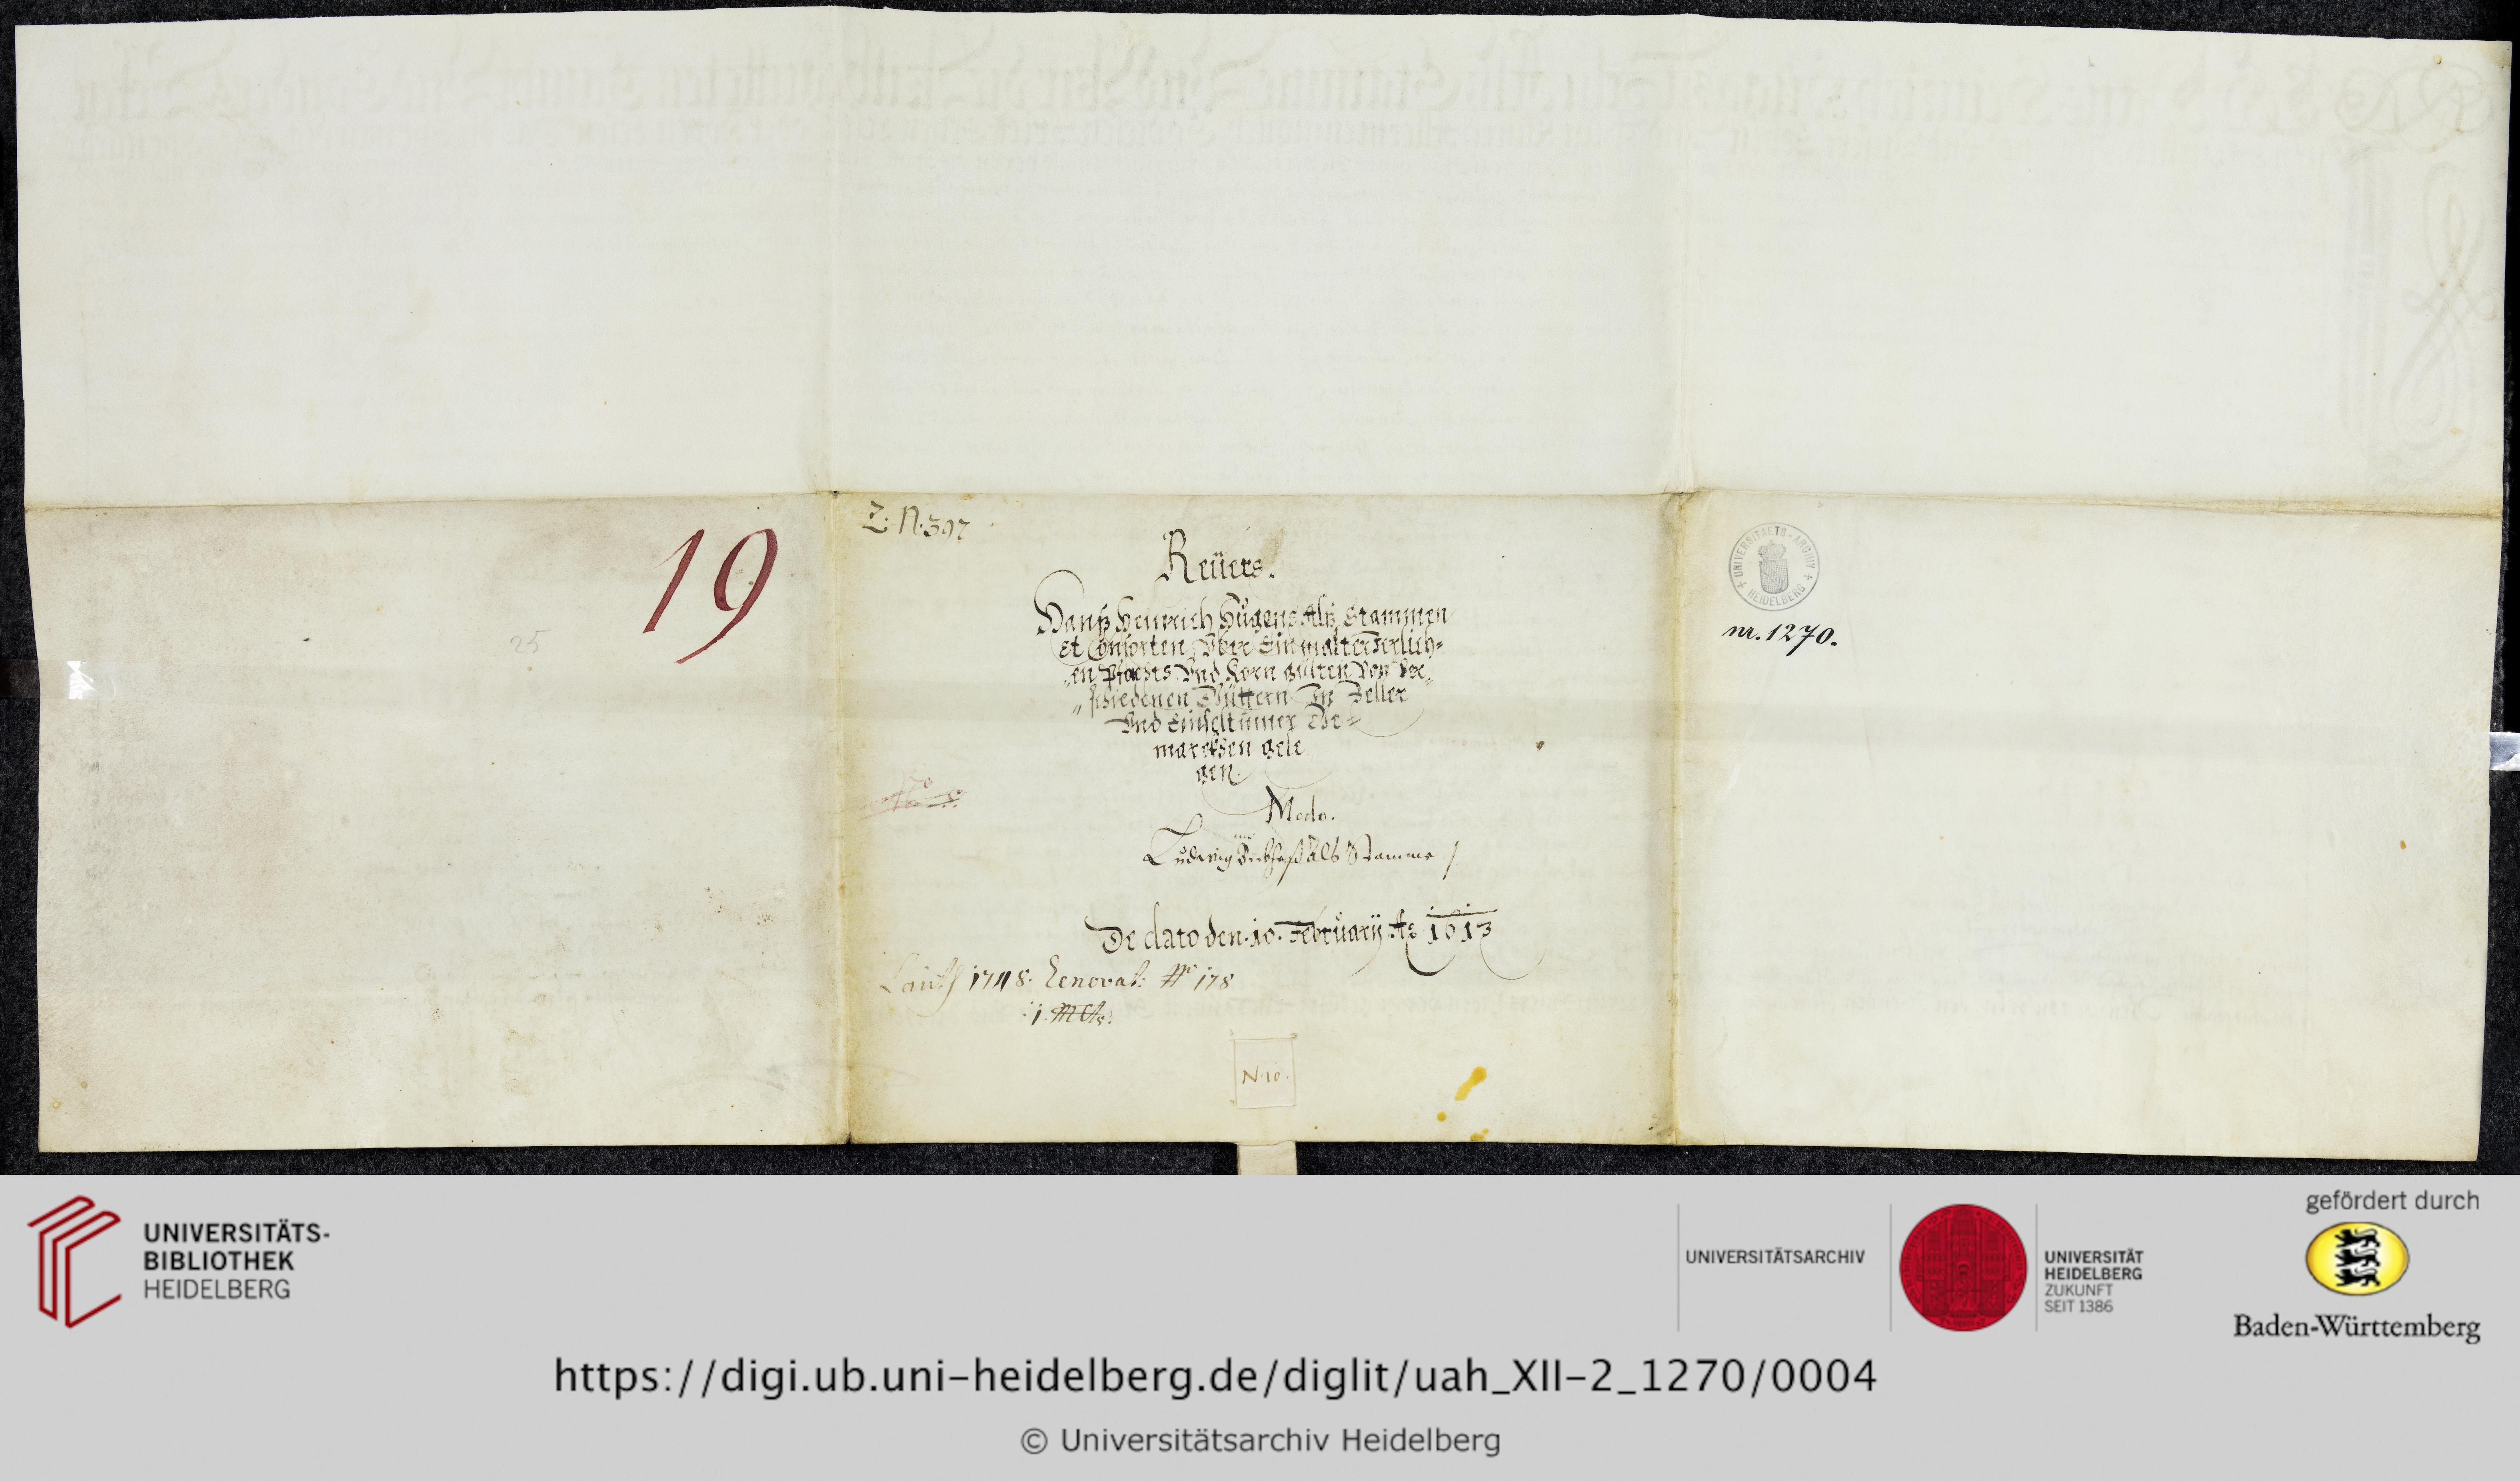 Z. N. 397
19
25
Reüers.
Hanß Henrich Hügens Alß Stammen
et Consorten Über Ein malter Jerlich-
„en Pfachts Vnd Korn gülten Von Ver„
„schiedenen Güttern In Zeller
Vnd Einseltümer Ge-
marckhen gele
gen.
Modo.
Ludwig als Stamme /
De dato den 10. Februarij Ao 1613
Lauth 1748. Renovat: 178
1.
N. 10.
UNIVERSITAETS-ARCHIV HEIDELBERG
nr. 1270.
UNIVERSITÄTS-
BIBLIOTHEK
HEIDELBERG
UNIVERSITÄTSARCHIV
UNIVERSITÄT
HEIDELBERG
ZUKUNFT
SEIT 1386
gefördert durch
Baden-Württemberg
https://digi.ub.uni-heidelberg.de/diglit/uah_XII-2_1270/0004
© Universitätsarchiv Heidelberg